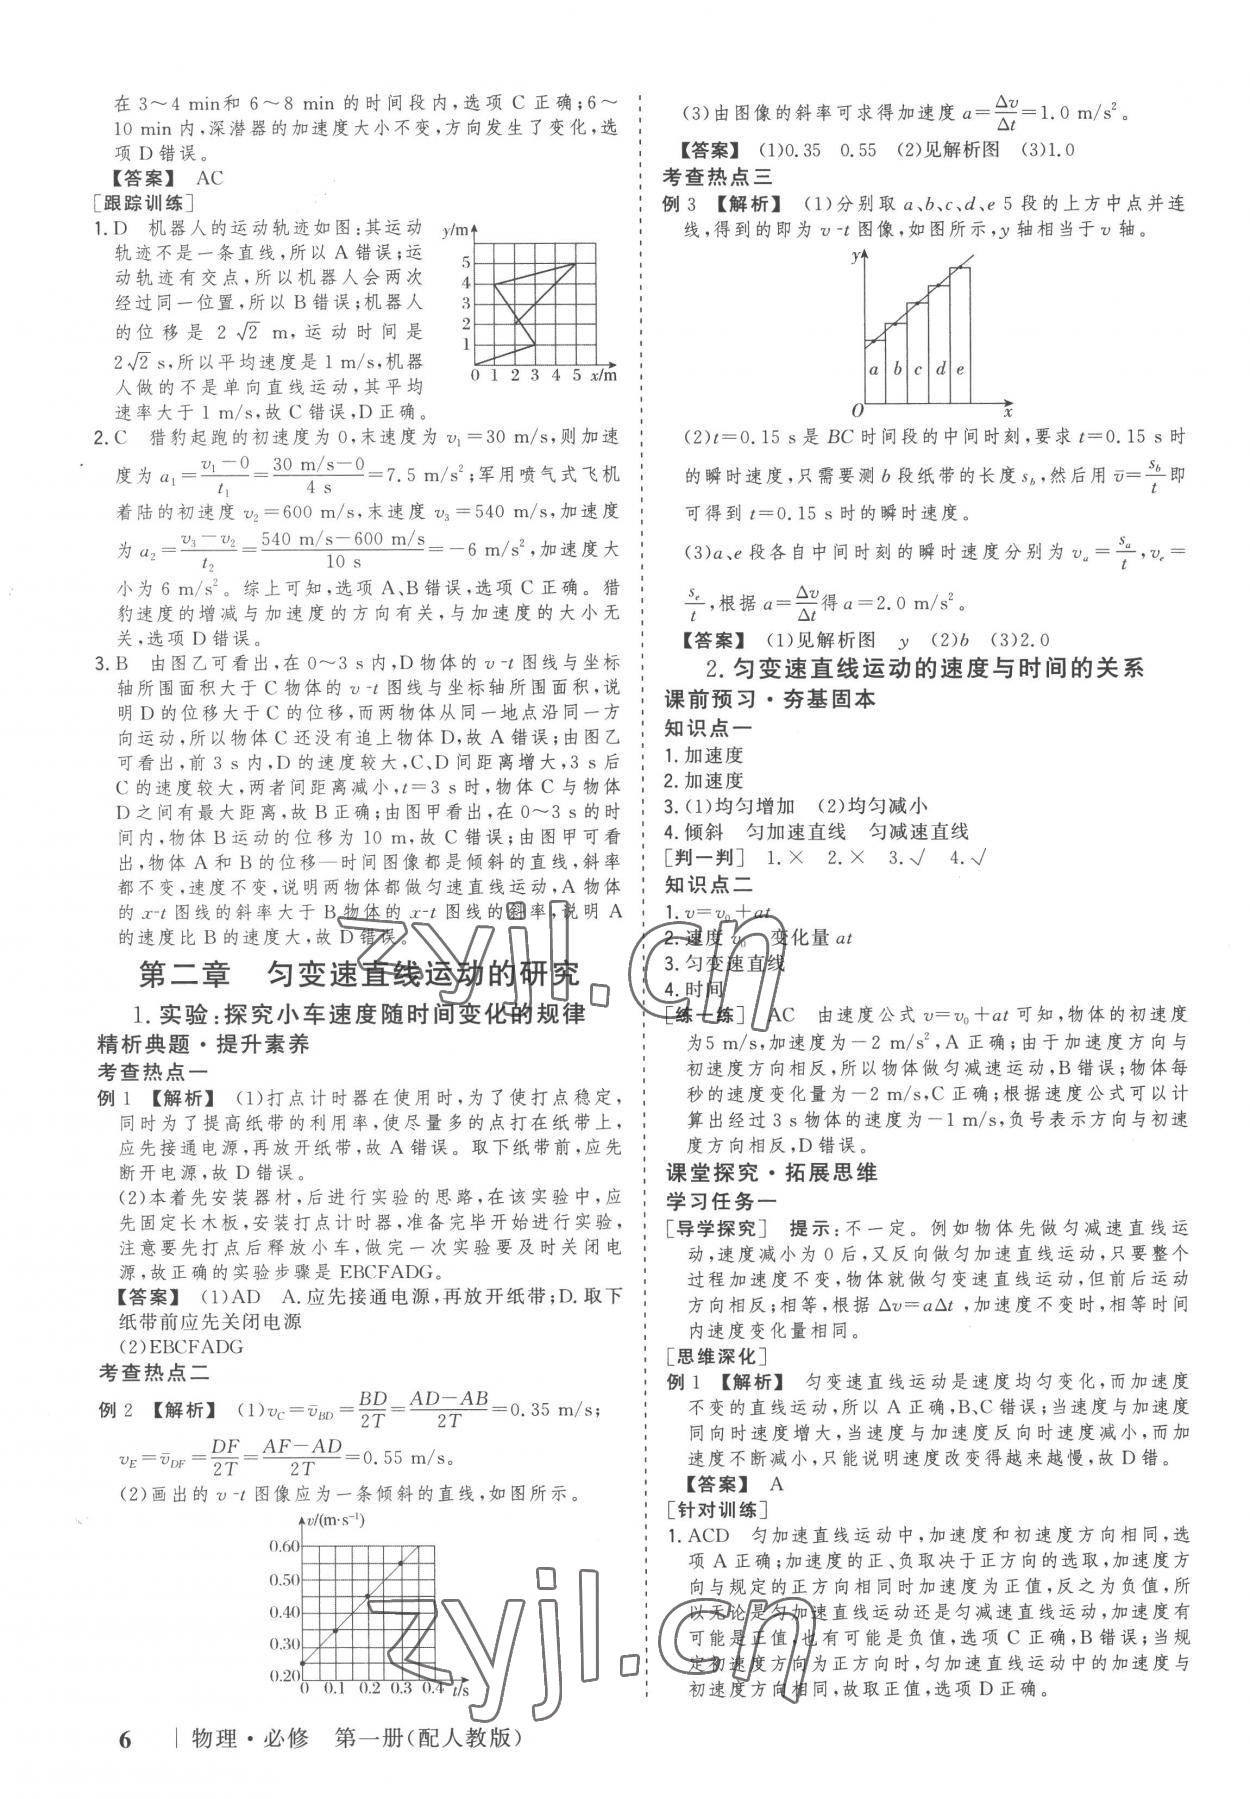 在 3～4 min和 6～8 min 的时间段内,选项 C 正确;6～
10 min 内,深潜器的加速度大小不变,方向发生了变化,选
项 D 错误。
【答案】 AC
[跟踪训练]
1. D 机器人的运动轨迹如图:其运动
轨迹不是一条直线,所以 A 错误;运
动轨迹有交点,所以机器人会两次
经过同一位置,所以 B 错误;机器人
的位移是 2√2 m,运动时间是
2√2 s,所以平均速度是 1 m/s,机器
人做的不是单向直线运动,其平均
速率大于 1 m/s,故 C 错误,D 正确。
y/m
5
4
3
2
1
0 1 2 3 4 5 x/m
2. C 猎豹起跑的初速度为 0,末速度为 v₁=30 m/s,则加速
度为 a₁=(v₁-0)/t₁=(30 m/s-0)/(4 s)=7.5 m/s²;军用喷气式飞机
着陆的初速度 v₂=600 m/s,末速度 v₃=540 m/s,加速度
为 a₂=(v₃-v₂)/t₂=(540 m/s-600 m/s)/(10 s)=-6 m/s²,加速度大
小为 6 m/s²。综上可知,选项 A、B 错误,选项 C 正确。猎
豹速度的增减与加速度的方向有关,与加速度的大小无
关,选项 D 错误。
3. B 由图乙可看出,在 0～3 s 内,D 物体的 v-t 图线与坐标
轴所围面积大于 C 物体的 v-t 图线与坐标轴所围面积,说
明 D 的位移大于 C 的位移,而两物体从同一地点沿同一方
向运动,所以物体 C 还没有追上物体 D,故 A 错误;由图乙
可看出,前 3 s 内,D 的速度较大,C、D 间距离增大,3 s 后
C 的速度较大,两者间距离减小,t=3 s 时,物体 C 与物体
D 之间有最大距离,故 B 正确;由图甲看出,在 0～3 s 的时
间内,物体 B 运动的位移为 10 m,故 C 错误;由图甲可看
出,物体 A 和 B 的位移—时间图像都是倾斜的直线,斜率
都不变,速度不变,说明两物体都做匀速直线运动,A 物体
的 x-t 图线的斜率大于 B 物体的 x-t 图线的斜率,说明 A
的速度比 B 的速度大,故 D 错误。
第二章 匀变速直线运动的研究
1. 实验:探究小车速度随时间变化的规律
精析典题·提升素养
考查热点一
例 1 【解析】 (1)打点计时器在使用时,为了使打点稳定,
同时为了提高纸带的利用率,使尽量多的点打在纸带上,
应先接通电源,再放开纸带,故 A 错误。取下纸带前,应先
断开电源,故 D 错误。
(2)本着先安装器材,后进行实验的思路,在该实验中,应
先固定长木板,安装打点计时器,准备完毕开始进行实验,
注意要先打点后释放小车,做完一次实验要及时关闭电
源,故正确的实验步骤是 EBCFADG。
【答案】 (1)AD A.应先接通电源,再放开纸带;D.取下
纸带前应先关闭电源
(2)EBCFADG
考查热点二
例 2 【解析】 (1)v_C=v̄_BD=BD/2T=(AD-AB)/2T=0.35 m/s;
v_E=v̄_DF=DF/2T=(AF-AD)/2T=0.55 m/s。
(2)画出的 v-t 图像应为一条倾斜的直线,如图所示。
v/(m·s⁻¹)
0.60
0.50
0.40
0.30
0.20
0 0.1 0.2 0.3 0.4 t/s
6 物理·必修 第一册(配人教版)
(3)由图像的斜率可求得加速度 a=Δv/Δt=1.0 m/s²。
【答案】 (1)0.35 0.55 (2)见解析图 (3)1.0
考查热点三
例 3 【解析】 (1)分别取 a、b、c、d、e 5 段的上方中点并连
线,得到的即为 v-t 图像,如图所示,y 轴相当于 v 轴。
y
a b c d e
O x
(2)t=0.15 s 是 BC 时间段的中间时刻,要求 t=0.15 s 时
的瞬时速度,只需要测 b 段纸带的长度 s_b,然后用 v̄=s_b/t 即
可得到 t=0.15 s 时的瞬时速度。
(3)a、e 段各自中间时刻的瞬时速度分别为 v_a=s_a/t,v_e=
s_e/t,根据 a=Δv/Δt得 a=2.0 m/s²。
【答案】 (1)见解析图 y (2)b (3)2.0
2. 匀变速直线运动的速度与时间的关系
课前预习·夯基固本
知识点一
1. 加速度
2. 加速度
3. (1)均匀增加 (2)均匀减小
4. 倾斜 匀加速直线 匀减速直线
[判一判] 1. × 2. × 3. √ 4. √
知识点二
1. v=v₀+at
2. 速度 v₀ 变化量 at
3. 匀变速直线
4. 时间
[练一练] AC 由速度公式 v=v₀+at 可知,物体的初速度
为5 m/s,加速度为-2 m/s²,A 正确;由于加速度方向与
初速度方向相反,所以物体做匀减速运动,B 错误;物体每
秒的速度变化量为-2 m/s,C 正确;根据速度公式可以计
算出经过 3 s 物体的速度为-1 m/s,负号表示方向与初速
度方向相反,D 错误。
课堂探究·拓展思维
学习任务一
[导学探究] 提示:不一定。例如物体先做匀减速直线运
动,速度减小为 0 后,又反向做匀加速直线运动,只要整个
过程加速度不变,物体就做匀变速直线运动,但前后运动
方向相反;相等,根据 Δv=aΔt,加速度不变时,相等时间
内速度变化量相同。
[思维深化]
例 1 【解析】 匀变速直线运动是速度均匀变化,而加速度
不变的直线运动,所以 A 正确,B、C 错误;当速度与加速度
同向时速度增大,当速度与加速度反向时速度减小,而加
速度不断减小,只能说明速度改变得越来越慢,故 D 错。
【答案】 A
[针对训练]
1. ACD 匀加速直线运动中,加速度和初速度方向相同,选
项 A 正确;加速度的正、负取决于正方向的选取,加速度方
向与规定的正方向相同时加速度为正值,反之为负值,所
以无论是匀加速直线运动还是匀减速直线运动,加速度有
可能是正值,也有可能是负值,选项 C 正确,B 错误;当规
定初速度方向为正方向时,匀加速直线运动中的加速度与
初速度方向相同,故取正值,选项 D 正确。
zyjl.cn
zyjl.cn